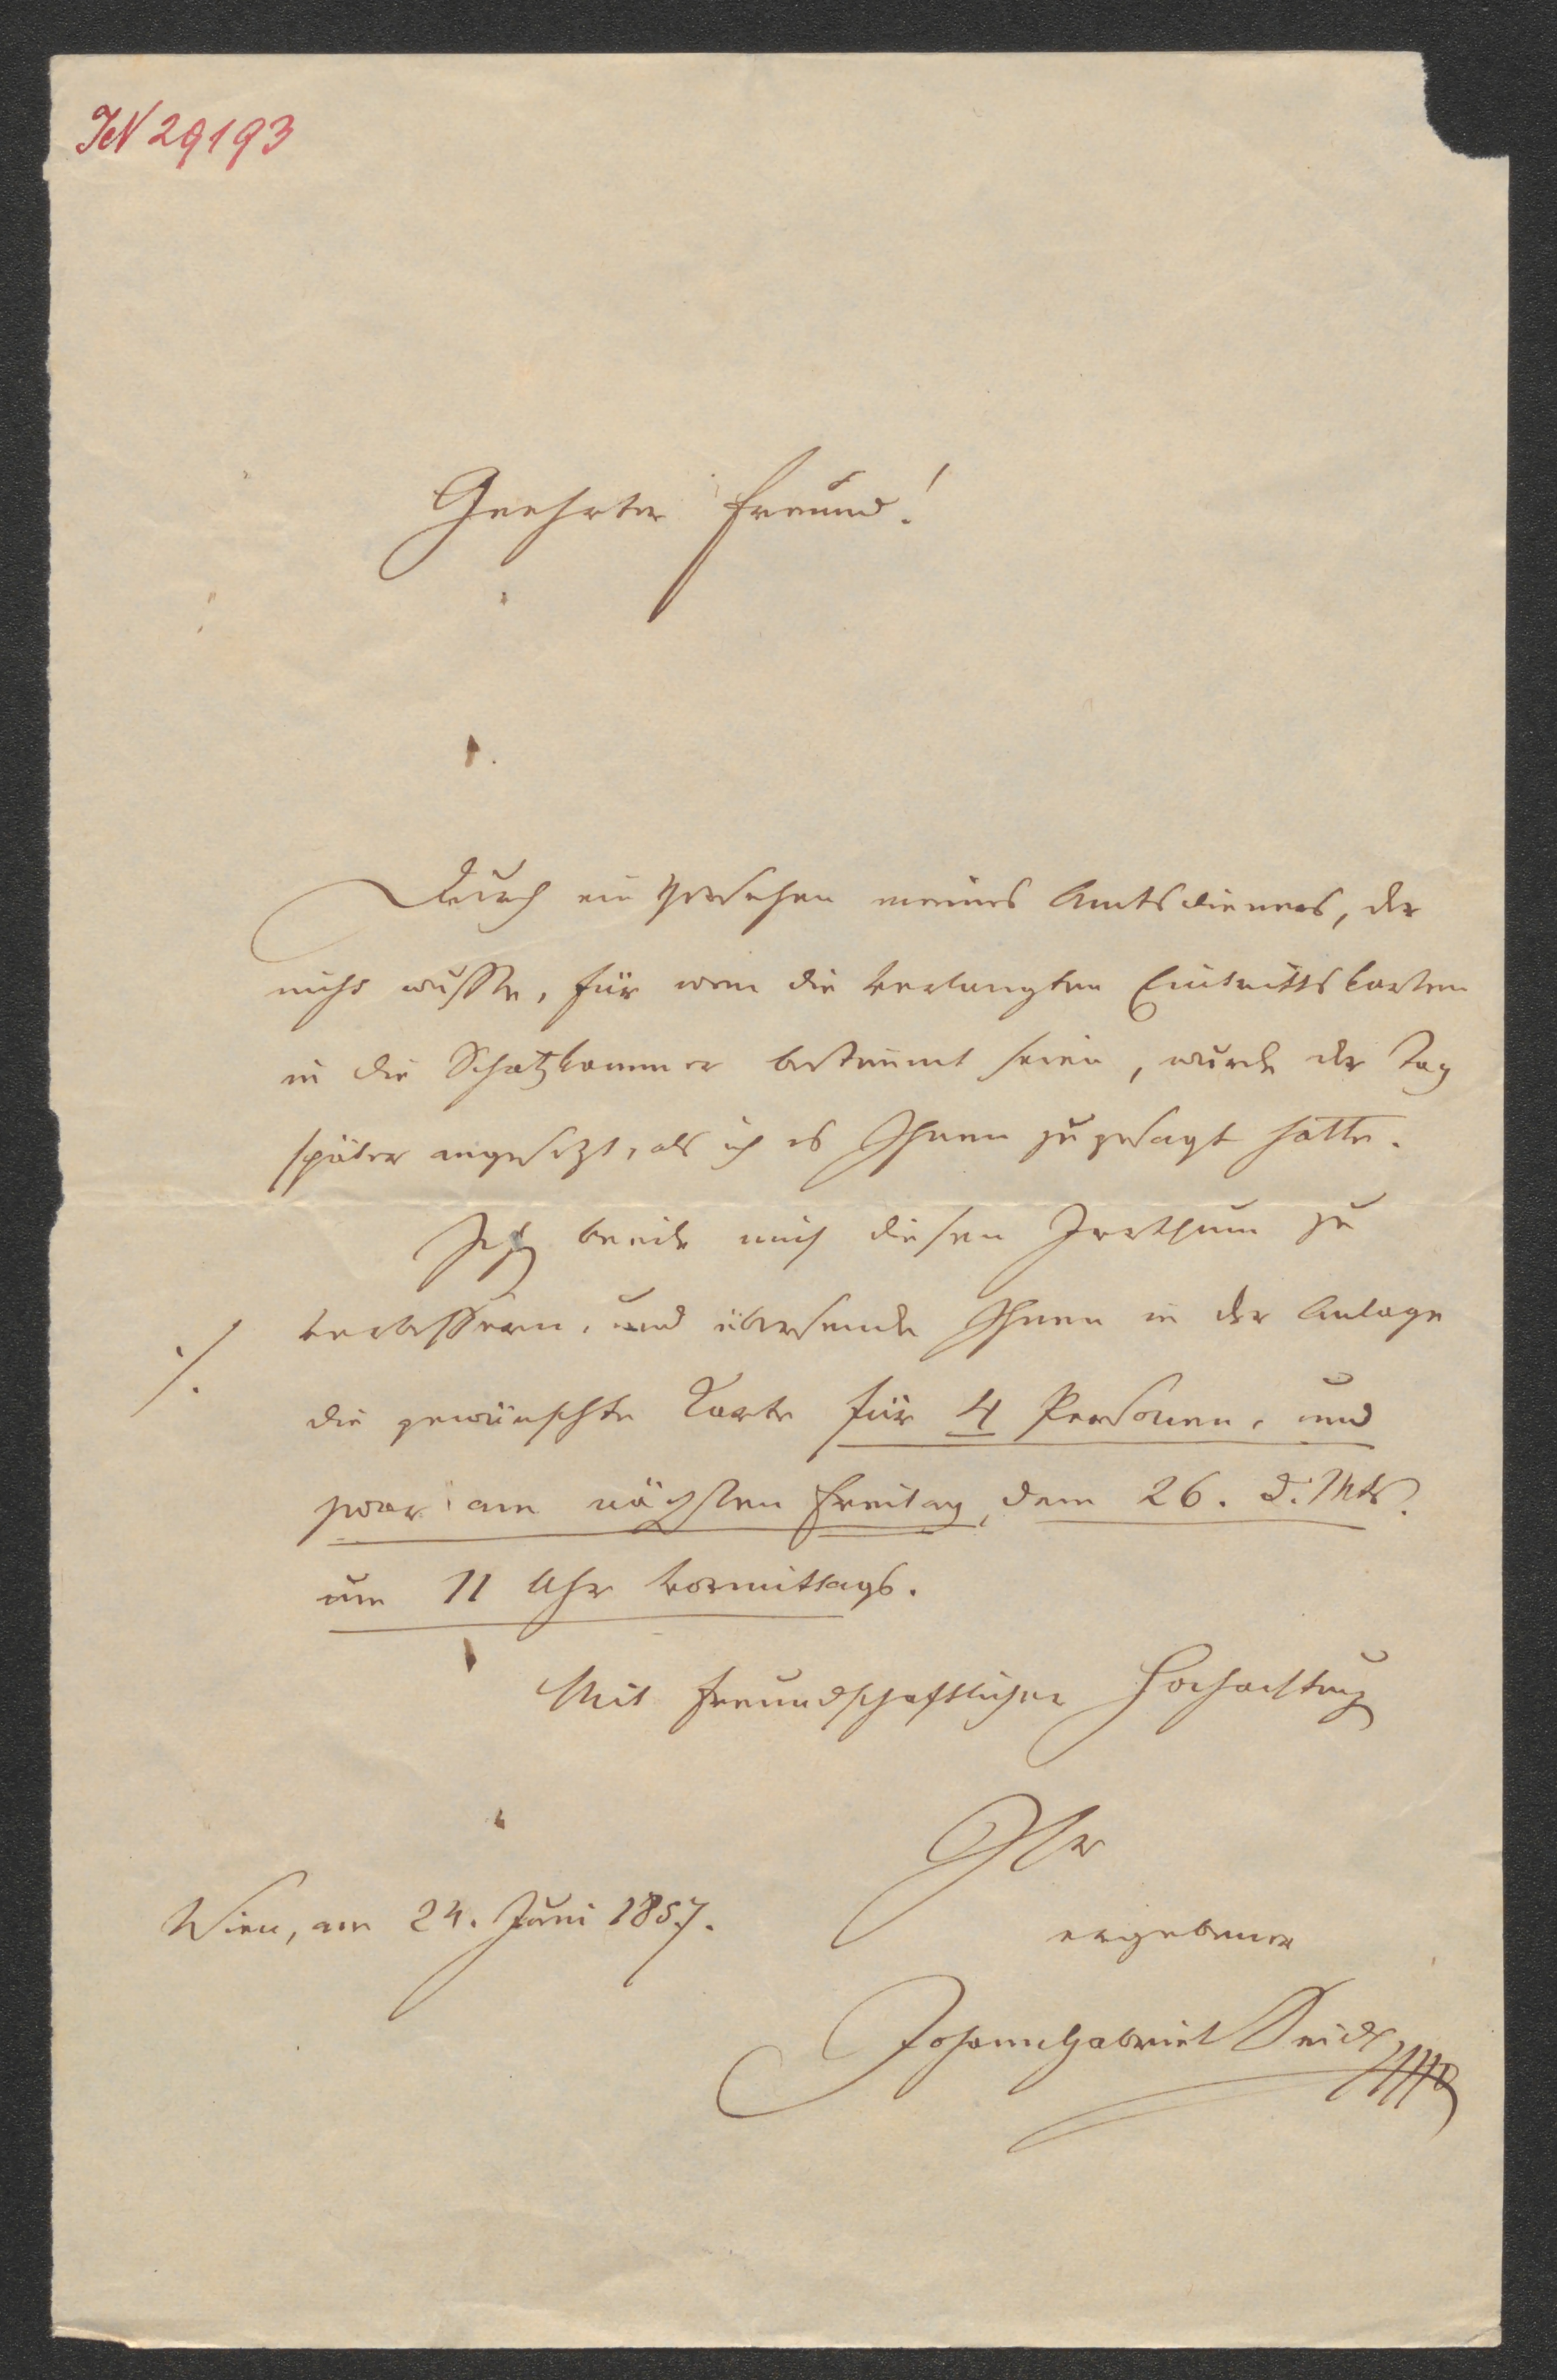 IN 29193
Geehrter Freund!
Durch ein Versehen meines Amtsdieners, der
nicht wußte, für wen die verlangten Eintrittskarten
in die Schatzkammer bestimmt seien, wurde der Tag
später angesetzt, als ich es Ihnen zugesagt hatte.
Ich beeile mich diesen Irrthum zu
verbessern, und übersende Ihnen in der Anlage
./.
die gewünschte Karte für 4 Personen, und
zwar am nächsten Freitag, dem 26. d. Mts.
um 11 Uhr Vormittags.
Mit freundschaftlicher Hochachtung
Ihr
Wien, am 24. Juni 1857.
ergebener
Johann Gabriel Seidl